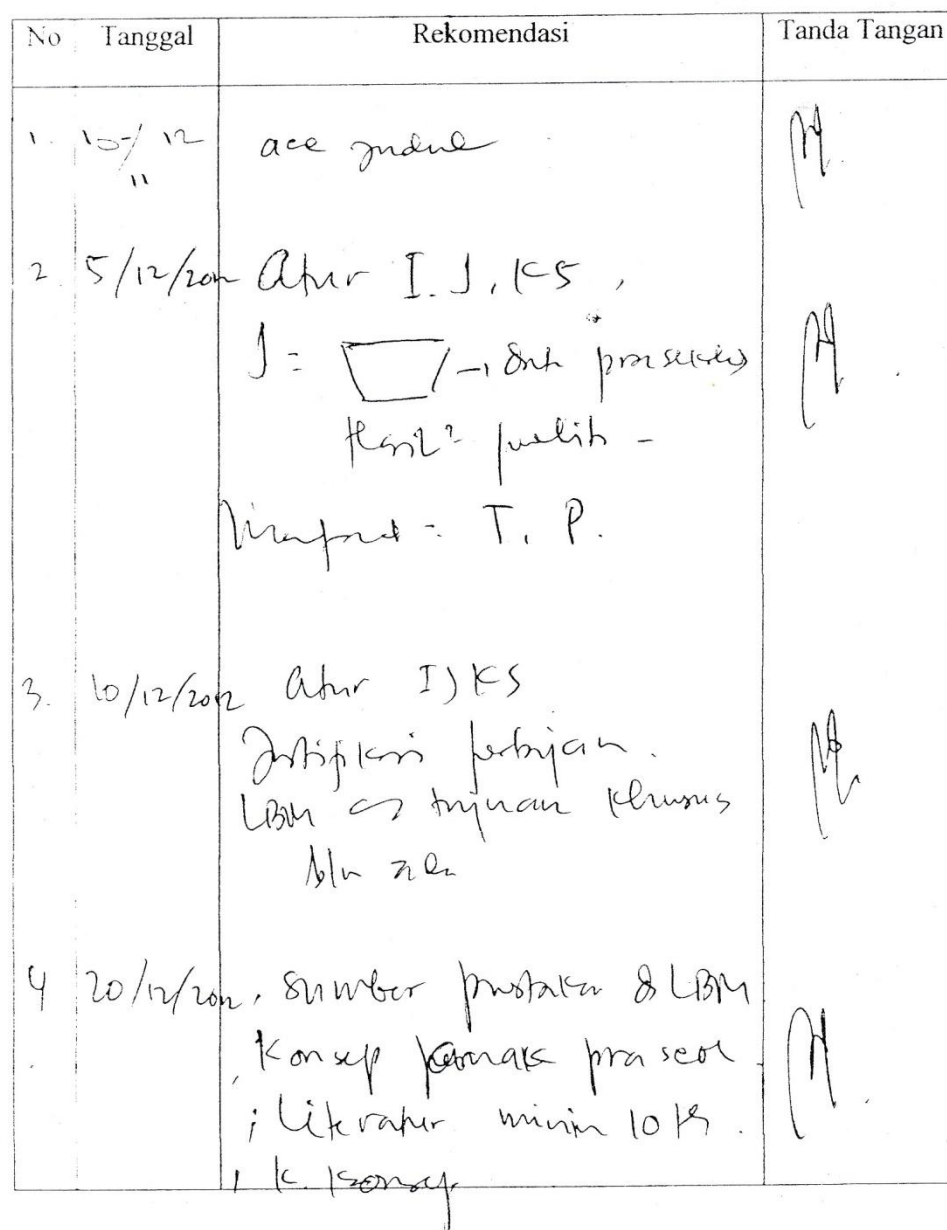 No Tanggal Rekomendasi Tanda Tangan
1. 10/12 acc judul
11
2. 5/12/2012 Atur I.J.KS,
J = prasekolah
Hasil² penelit -
Manfaat = T. P.
3. 10/12/2012 Atur IJKS
Justifikasi
LBM tujuan khusus
4 20/12/2012, Sumber pustaka & LBM
, Konsep prasekol
; Literatur minim 10
, K. Konsep